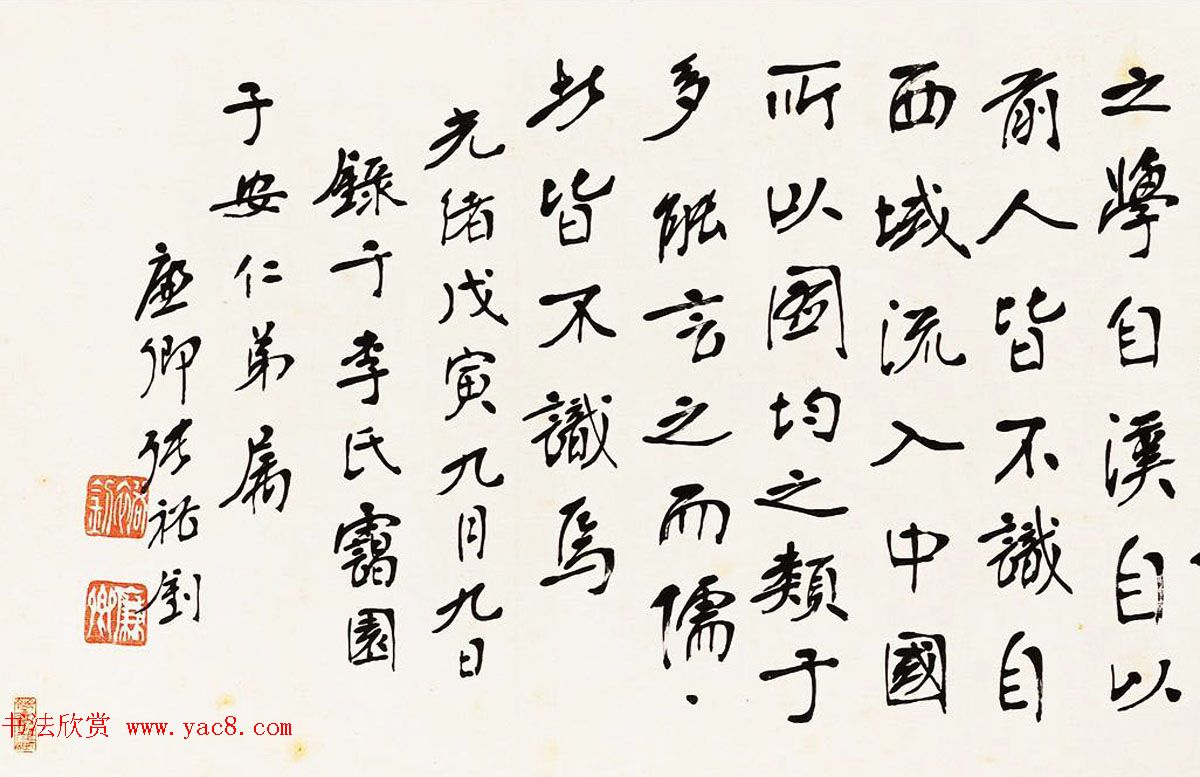 之學自漢自以
前人皆不識自
西域流入中國
所以圖均之類于
多能言之而儒
皆不識焉
光緒戊寅九月九日
錄于李氏靄園
子安仁弟屬
廉卿張裕釗
裕釗
廉卿
书法欣赏 www.yac8.com